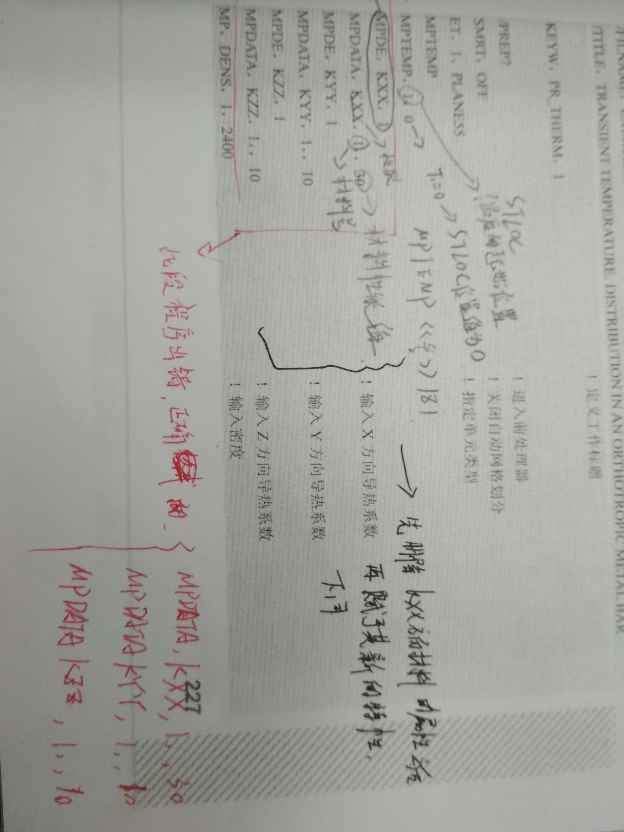 /TITLE, TRANSIENT TEMPERATURE DISTRIBUTION IN AN ORTHOTROPIC METAL BAR
! 定义工作标题
KEYW, PR_THERM, 1
/PREP7 ! 进入前处理器
SMRT, OFF ! 关闭自动网格划分
ET, 1, PLANE55 ! 指定单元类型
MPTEMP
MPTEMP, 1, 0
MPDE, KXX, 1
MPDATA, KXX, 1, , 30 ! 输入 X 方向导热系数
MPDE, KYY, 1
MPDATA, KYY, 1, , 10 ! 输入 Y 方向导热系数
MPDE, KZZ, 1
MPDATA, KZZ, 1, , 10 ! 输入 Z 方向导热系数
MP, DENS, 1, 2400 ! 输入密度
STLOC
温度的起始位置
T1=0 → STLOC位置值为0
MPTEMP
材料号
→ 先删除 KXX方向材料的属性
再赋予其新的特性.
下同
此段程序出错, 正确的
MPDATA, KXX, 1, , 30
MPDATA KYY, 1, , 10
MPDATA KZZ, 1, , 10
227